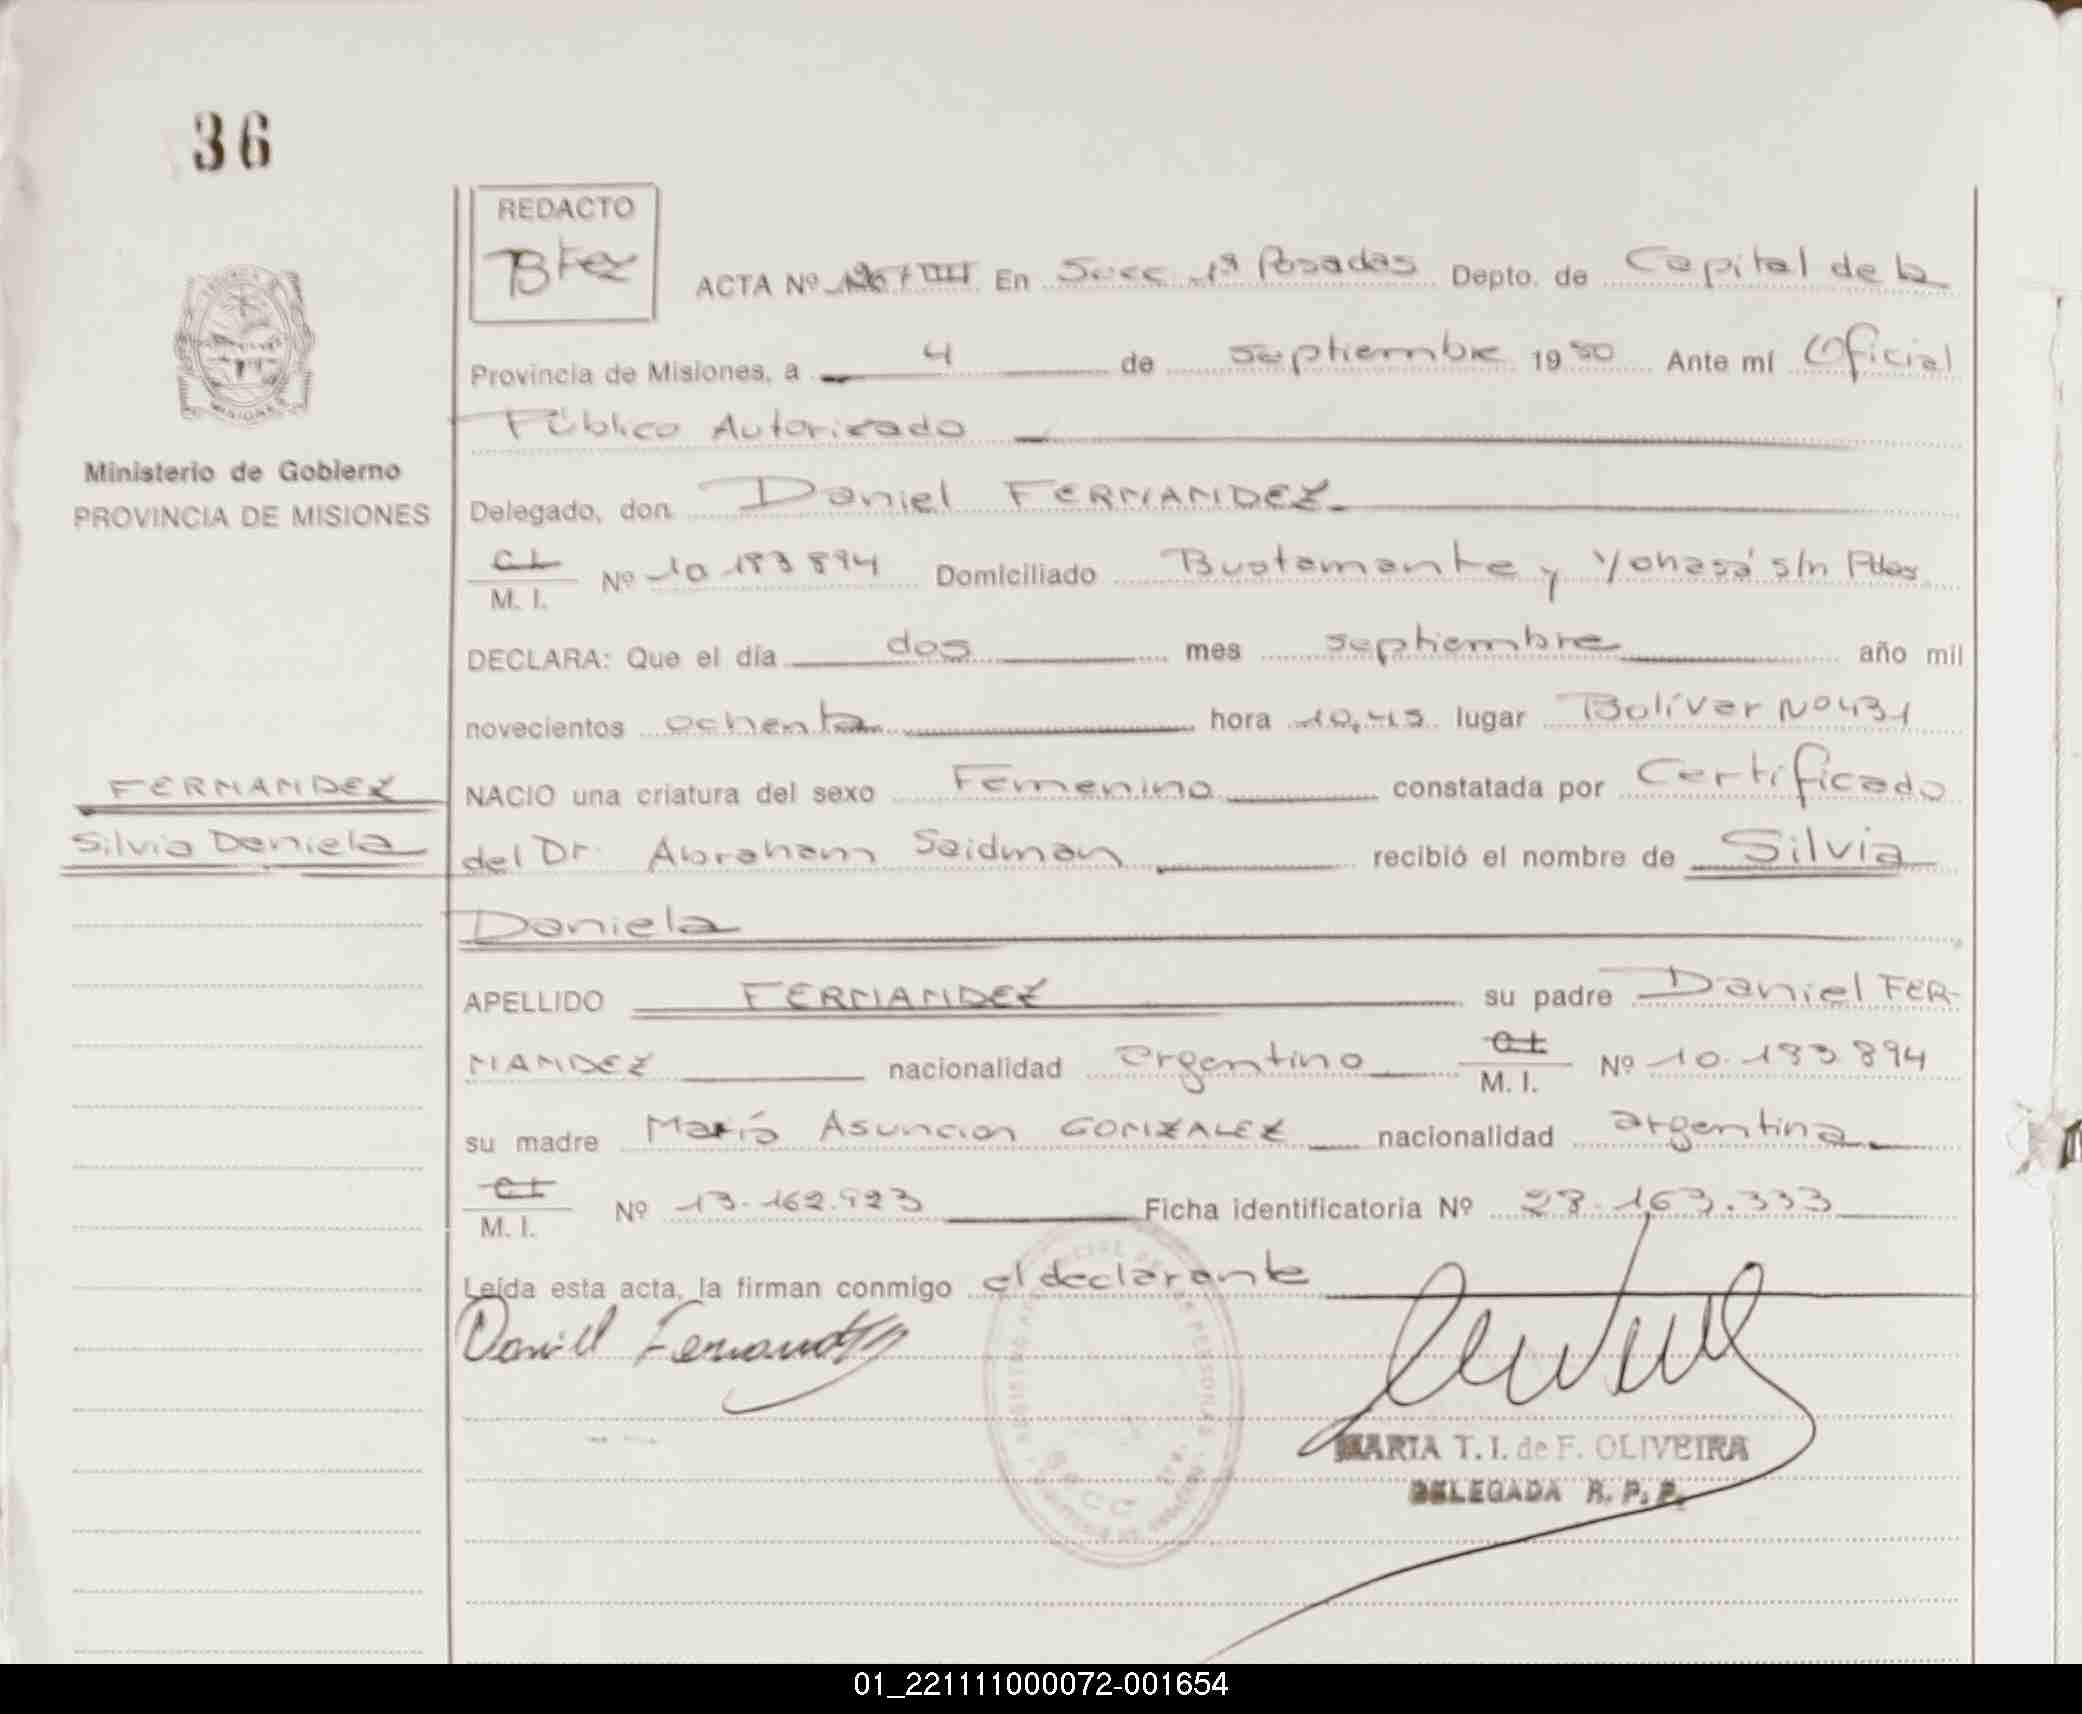 36
REDACTO
Bfez
ACTA Nº En Secc 1ª Posadas Depto. de Capital de la
Provincia de Misiones, a 4 de septiembre 1980 Ante mí Oficial
Público Autorizado
Ministerio de Gobierno
PROVINCIA DE MISIONES
Delegado, don Daniel FERNANDEZ
C.I.
M. I. Nº 10.183.894 Domiciliado Bustamante y Yohasá s/n Pdas
DECLARA: Que el día dos mes septiembre año mil
novecientos ochenta hora 10,45 lugar Bolívar Nº 431
FERNANDEZ
Silvia Daniela
NACIO una criatura del sexo Femenino constatada por Certificado
del Dr. Abraham Seidman recibió el nombre de Silvia
Daniela
APELLIDO FERNANDEZ su padre Daniel FER-
NANDEZ nacionalidad argentino C.I. M. I. Nº 10.183.894
su madre María Asuncion GONZALEZ nacionalidad argentina
C.I.
M. I. Nº 13.162.923 Ficha identificatoria Nº 28.163.333
Leída esta acta, la firman conmigo el declarante
Daniel Fernandez
MARIA T. I. de F. OLIVEIRA
DELEGADA R. P. P.
01_221111000072-001654